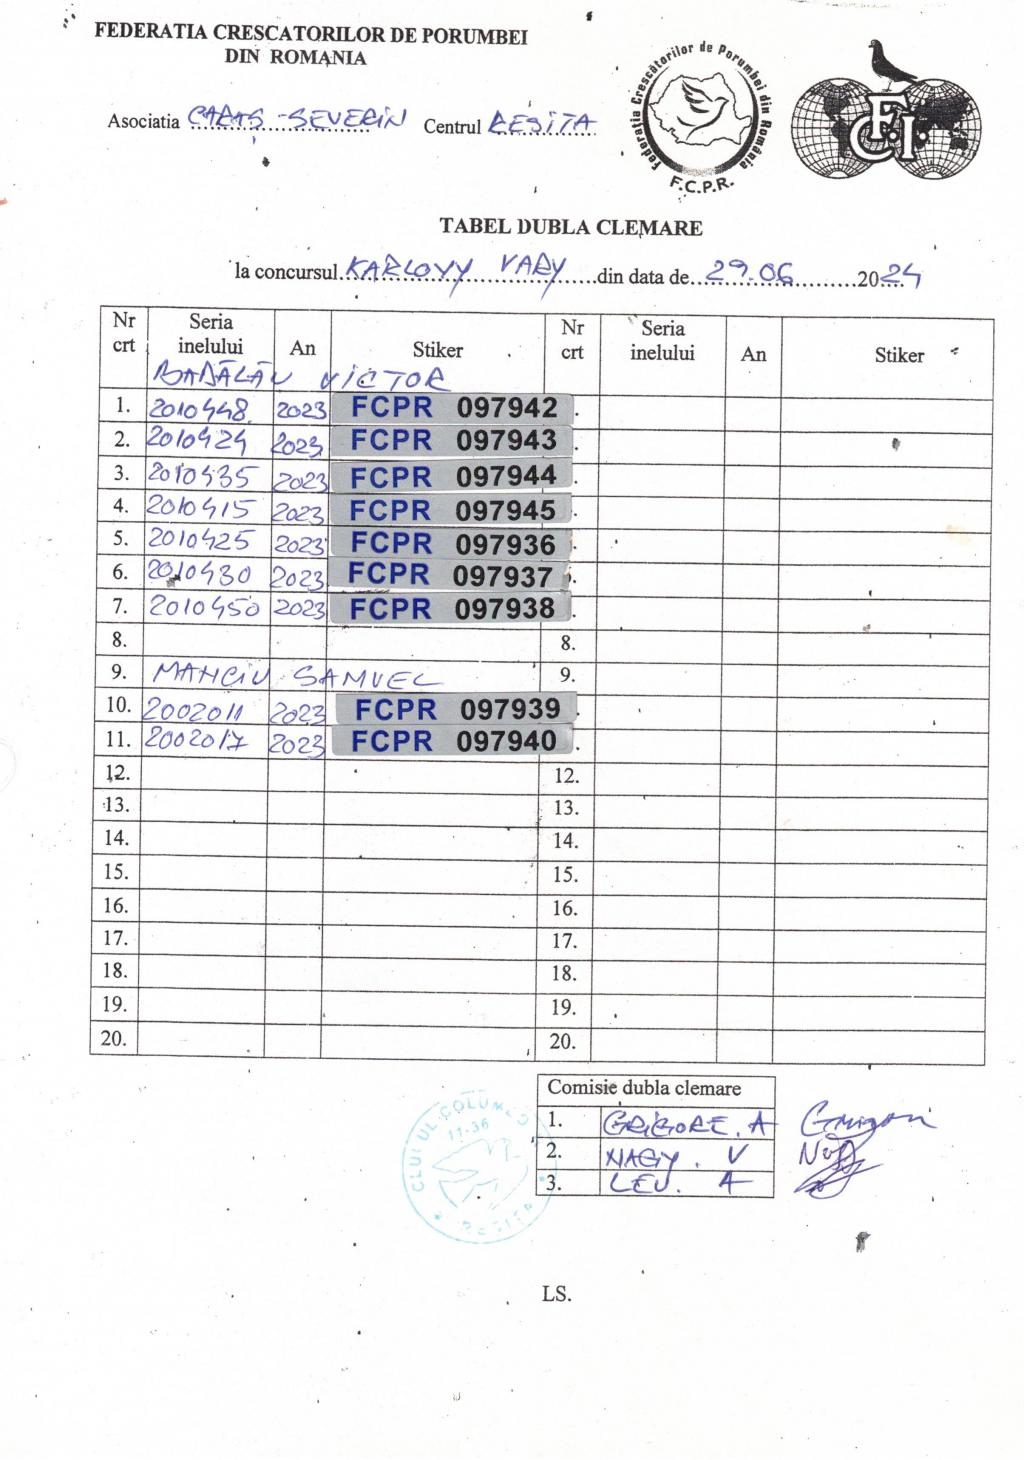 FEDERATIA CRESCATORILOR DE PORUMBEI
DIN ROMANIA
Federatia Crescătorilor de Porumbei din România
F.C.P.R.
F.C.I.
Asociatia CARAS-SEVERIN Centrul RESITA
TABEL DUBLA CLEMARE
la concursul KARLOVY VARY din data de 29.06 2024
Nr crt Seria inelului An Stiker Nr crt Seria inelului An Stiker
BADĂLĂU VICTOR
1. 2010448 2023 FCPR 097942
2. 2010424 2023 FCPR 097943
3. 2010435 2023 FCPR 097944
4. 2010415 2023 FCPR 097945
5. 2010425 2023 FCPR 097936
6. 2010430 2023 FCPR 097937
7. 2010450 2023 FCPR 097938
8. 8.
9. MANCIU SAMUEL 9.
10. 2002011 2023 FCPR 097939
11. 2002017 2023 FCPR 097940
12. 12.
13. 13.
14. 14.
15. 15.
16. 16.
17. 17.
18. 18.
19. 19.
20. 20.
Comisie dubla clemare
1. GRIGORE. A
2. NAGY. V
3. LEU. A
CLUBUL COLUMBO
11-36
RESITA
LS.